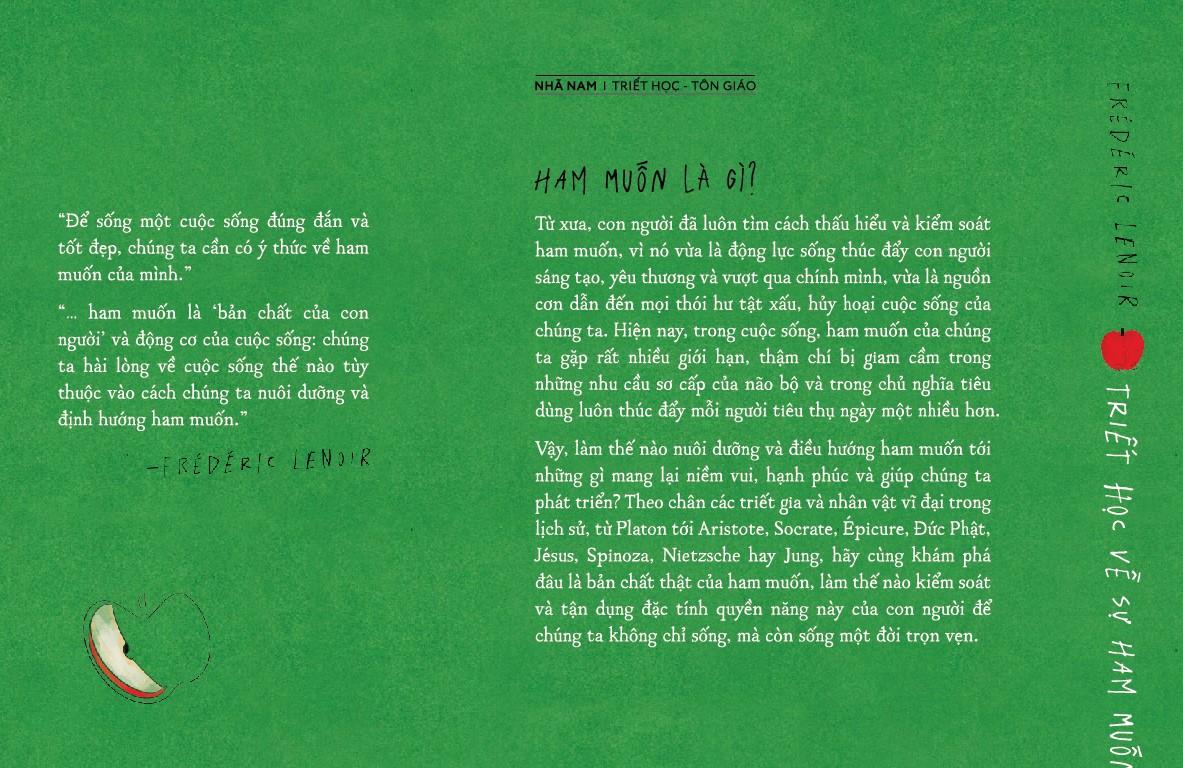 “Để sống một cuộc sống đúng đắn và
tốt đẹp, chúng ta cần có ý thức về ham
muốn của mình.”
“... ham muốn là ‘bản chất của con
người’ và động cơ của cuộc sống: chúng
ta hài lòng về cuộc sống thế nào tùy
thuộc vào cách chúng ta nuôi dưỡng và
định hướng ham muốn.”
–FRÉDÉRIC LENOIR
NHÃ NAM | TRIẾT HỌC - TÔN GIÁO
HAM MUỐN LÀ GÌ?
Từ xưa, con người đã luôn tìm cách thấu hiểu và kiểm soát
ham muốn, vì nó vừa là động lực sống thúc đẩy con người
sáng tạo, yêu thương và vượt qua chính mình, vừa là nguồn
cơn dẫn đến mọi thói hư tật xấu, hủy hoại cuộc sống của
chúng ta. Hiện nay, trong cuộc sống, ham muốn của chúng
ta gặp rất nhiều giới hạn, thậm chí bị giam cầm trong
những nhu cầu sơ cấp của não bộ và trong chủ nghĩa tiêu
dùng luôn thúc đẩy mỗi người tiêu thụ ngày một nhiều hơn.
Vậy, làm thế nào nuôi dưỡng và điều hướng ham muốn tới
những gì mang lại niềm vui, hạnh phúc và giúp chúng ta
phát triển? Theo chân các triết gia và nhân vật vĩ đại trong
lịch sử, từ Platon tới Aristote, Socrate, Épicure, Đức Phật,
Jésus, Spinoza, Nietzsche hay Jung, hãy cùng khám phá
đâu là bản chất thật của ham muốn, làm thế nào kiểm soát
và tận dụng đặc tính quyền năng này của con người để
chúng ta không chỉ sống, mà còn sống một đời trọn vẹn.
FRÉDÉRIC LENOIR
TRIẾT HỌC VỀ SỰ HAM MUỐN